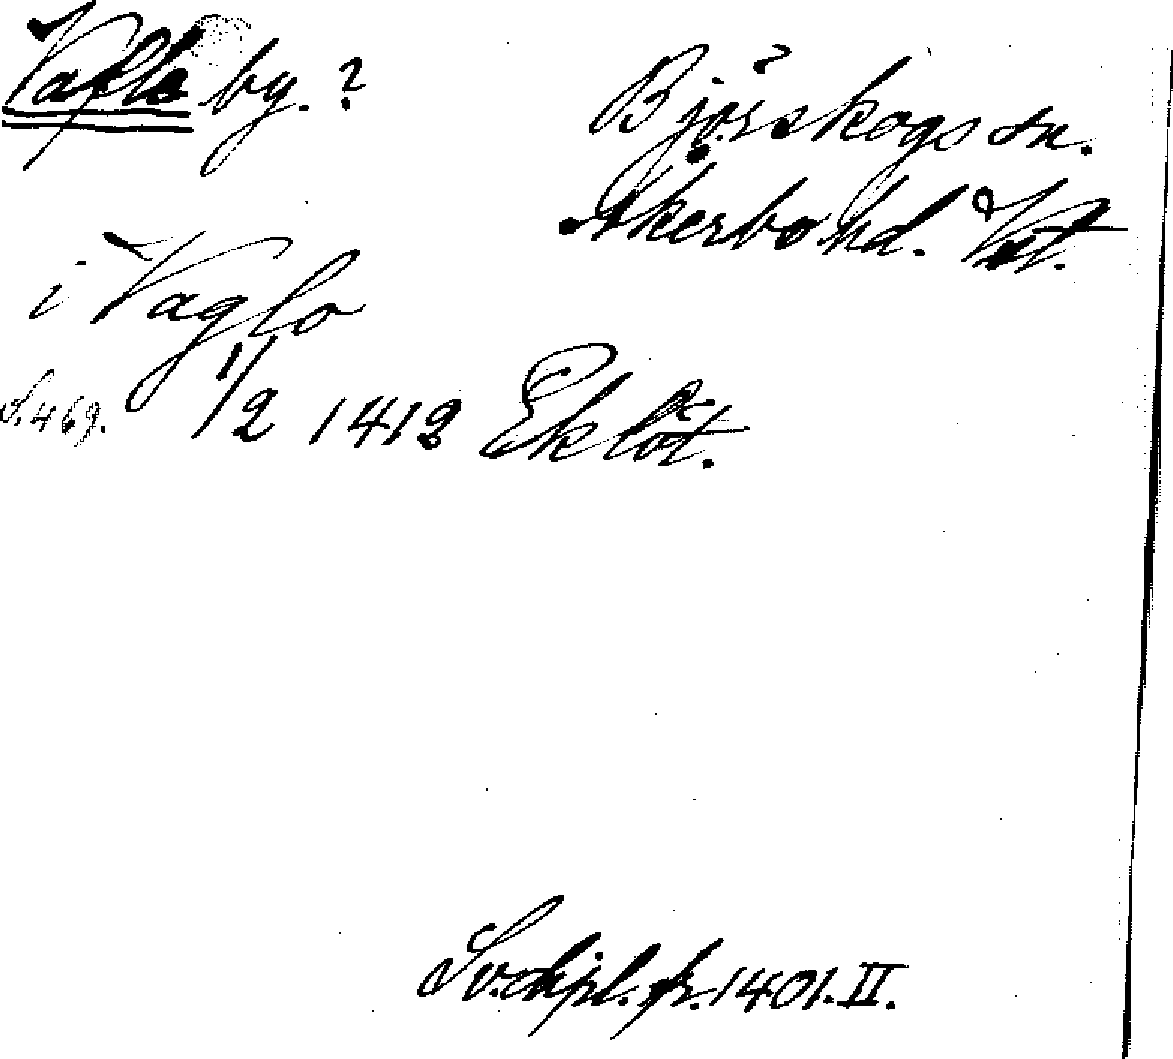 Vafle by. ?
Björskogs sn.
Åkerbo hd. Vst.
i Vaglo
S. 469. 1/2 1412 Eklöt.
Sv. dipl. fr. 1401. II.